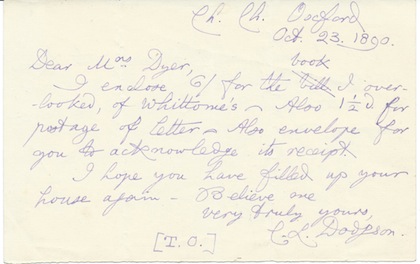 Ch. Ch. Oxford
Oct. 23. 1890.
Dear Mrs Dyer,
book
I enclose 6/ for the bill I over-
-looked, of Whittome's - Also 1½d for
postage of letter - Also envelope for
you to acknowledge its receipt
I hope you have filled up your
house again - Believe me
very truly yours,
C. L. Dodgson.
[T. O.]